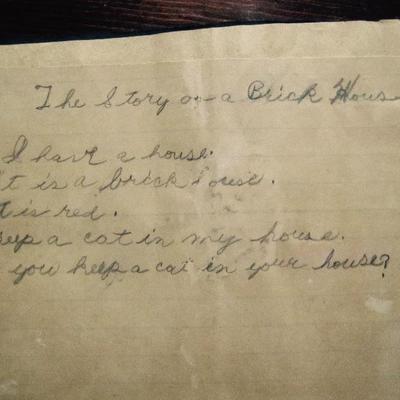 The Story of a Brick House
I have a house.
It is a brick house.
It is red.
keep a cat in my house.
you keep a cat in your house?